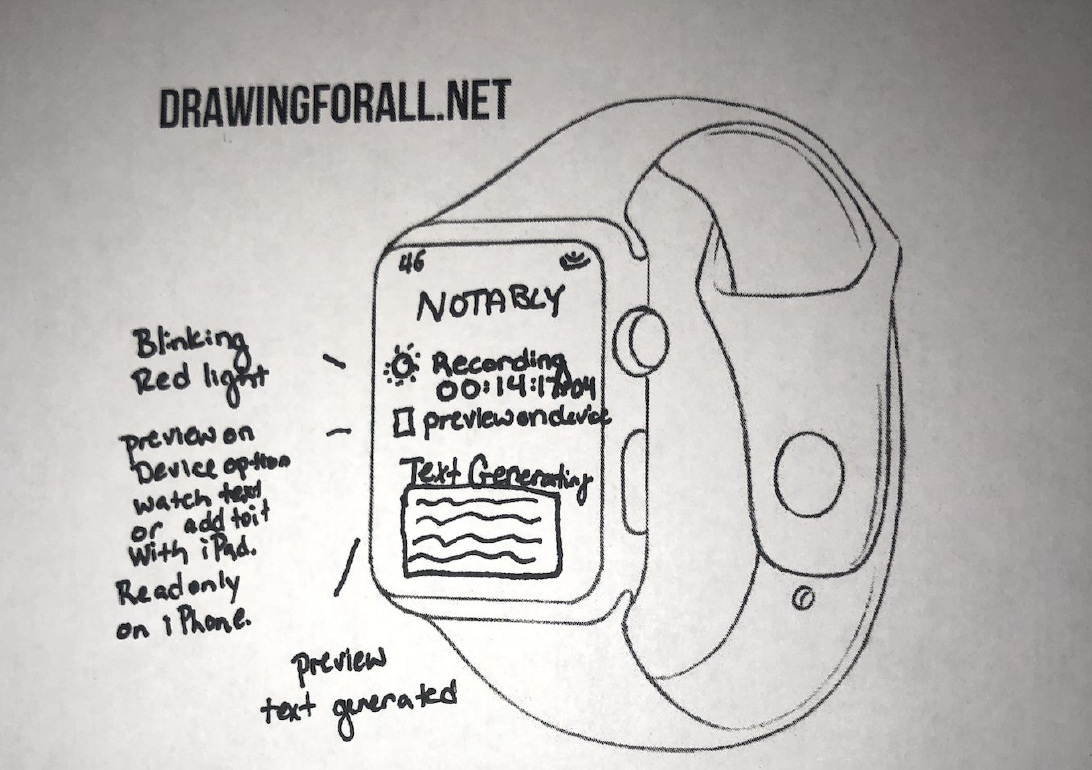 DRAWINGFORALL.NET
46
NOTABLY
Recording
00:14:17:04
previewondevice
Text Generating
Blinking
Red light
preview on
Device option
watch text
or add toit
with iPad.
Readonly
on iPhone.
preview
text generated